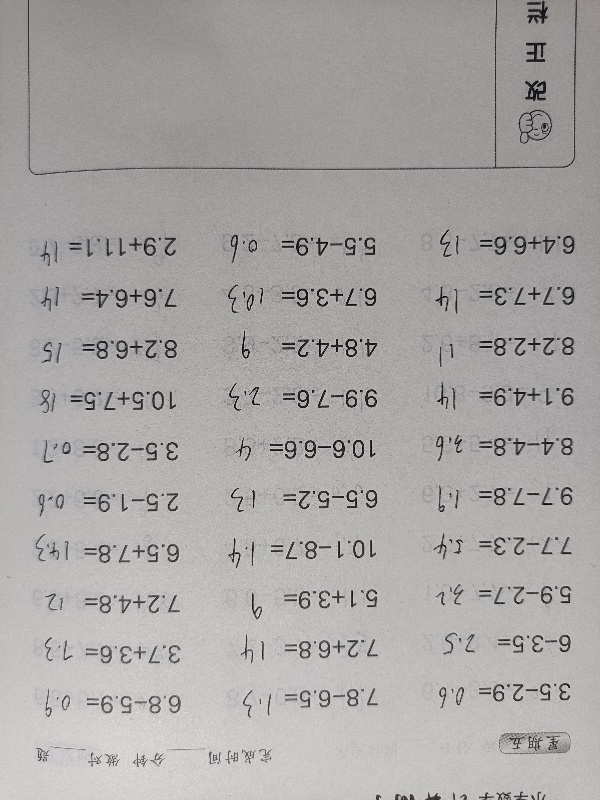 小学数学
星期五
完成时间____分钟 做对____题
3.5−2.9= 0.6 7.8−6.5= 1.3 6.8−5.9= 0.9
6−3.5= 2.5 7.2+6.8= 14 3.7+3.6= 7.3
5.9−2.7= 3.2 5.1+3.9= 9 7.2+4.8= 12
7.7−2.3= 5.4 10.1−8.7= 1.4 6.5+7.8= 14.3
9.7−7.8= 1.9 6.5−5.2= 13 2.5−1.9= 0.6
8.4−4.8= 3.6 10.6−6.6= 4 3.5−2.8= 0.7
9.1+4.9= 14 9.9−7.6= 2.3 10.5+7.5= 18
8.2+2.8= 11 4.8+4.2= 9 8.2+6.8= 15
6.7+7.3= 14 6.7+3.6= 10.3 7.6+6.4= 14
6.4+6.6= 13 5.5−4.9= 0.6 2.9+11.1= 14
改正栏